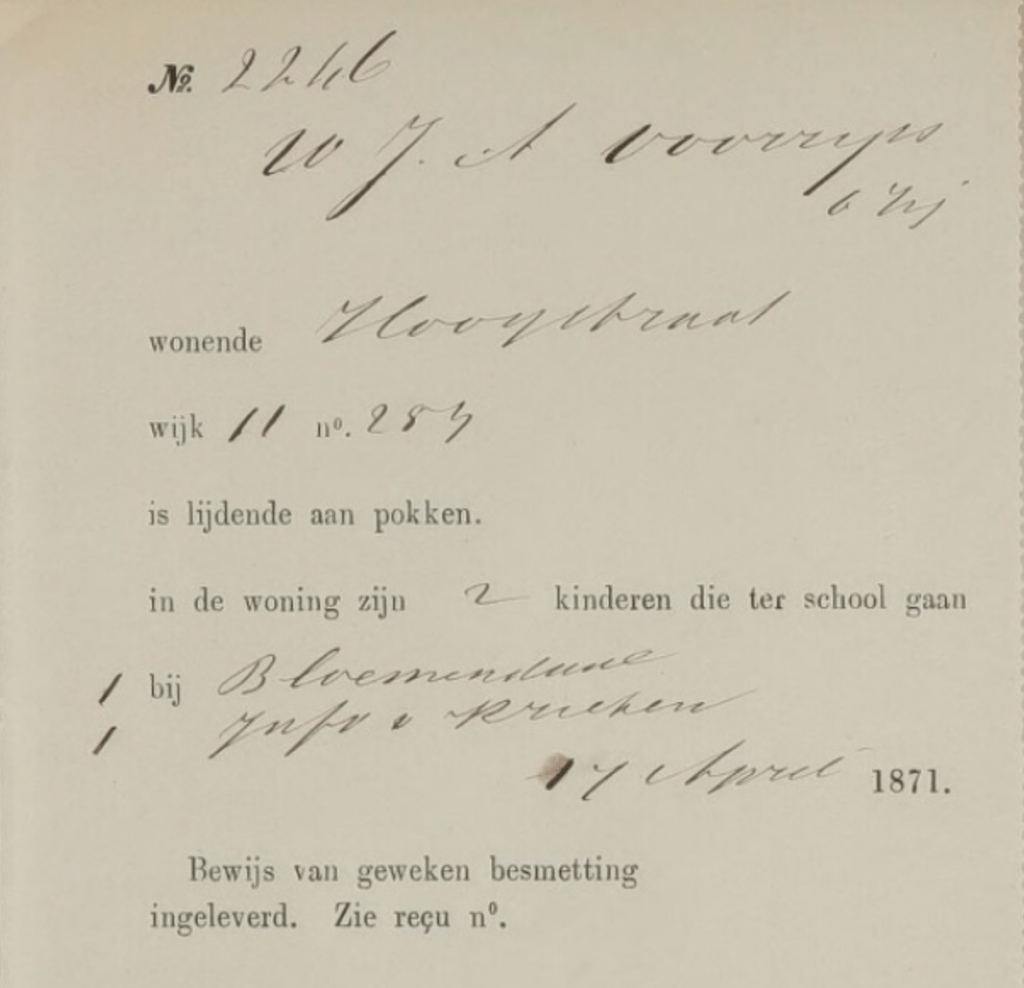 №. 2246
W J. A Voorrips
6 Mj
wonende Hoogstraat
wijk 11 nº. 287
is lijdende aan pokken.
in de woning zijn 2 kinderen die ter school gaan
1 bij Bloemendaal
1 Juf v Kricken
17 April 1871.
Bewijs van geweken besmetting
ingeleverd. Zie reçu nº.